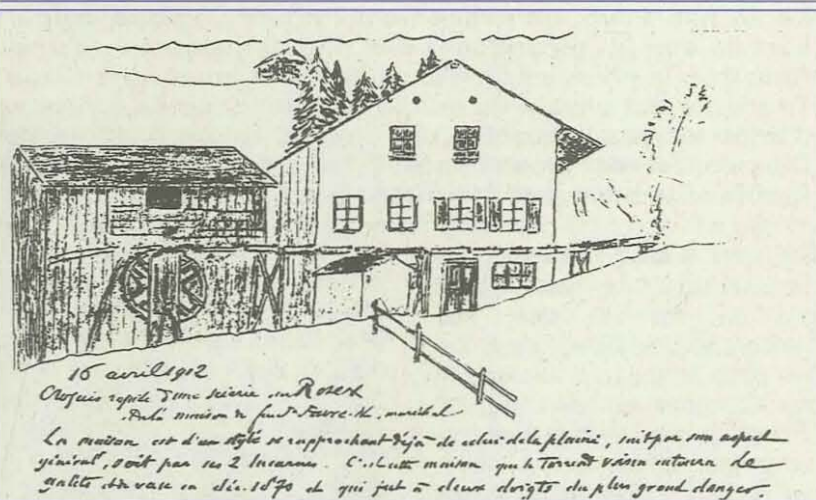 16 avril 1912
Croquis rapide d'une scierie au Rosex
De la maison de feu Favre, maréchal
La maison est d'un style se rapprochant déjà de celui de la plaine, soit par son aspect
général, soit par ses 2 lucarnes. C'est cette maison que le Torrent voisin entoura de
galets et de vase en déc. 1870 et qui fut à deux doigts du plus grand danger